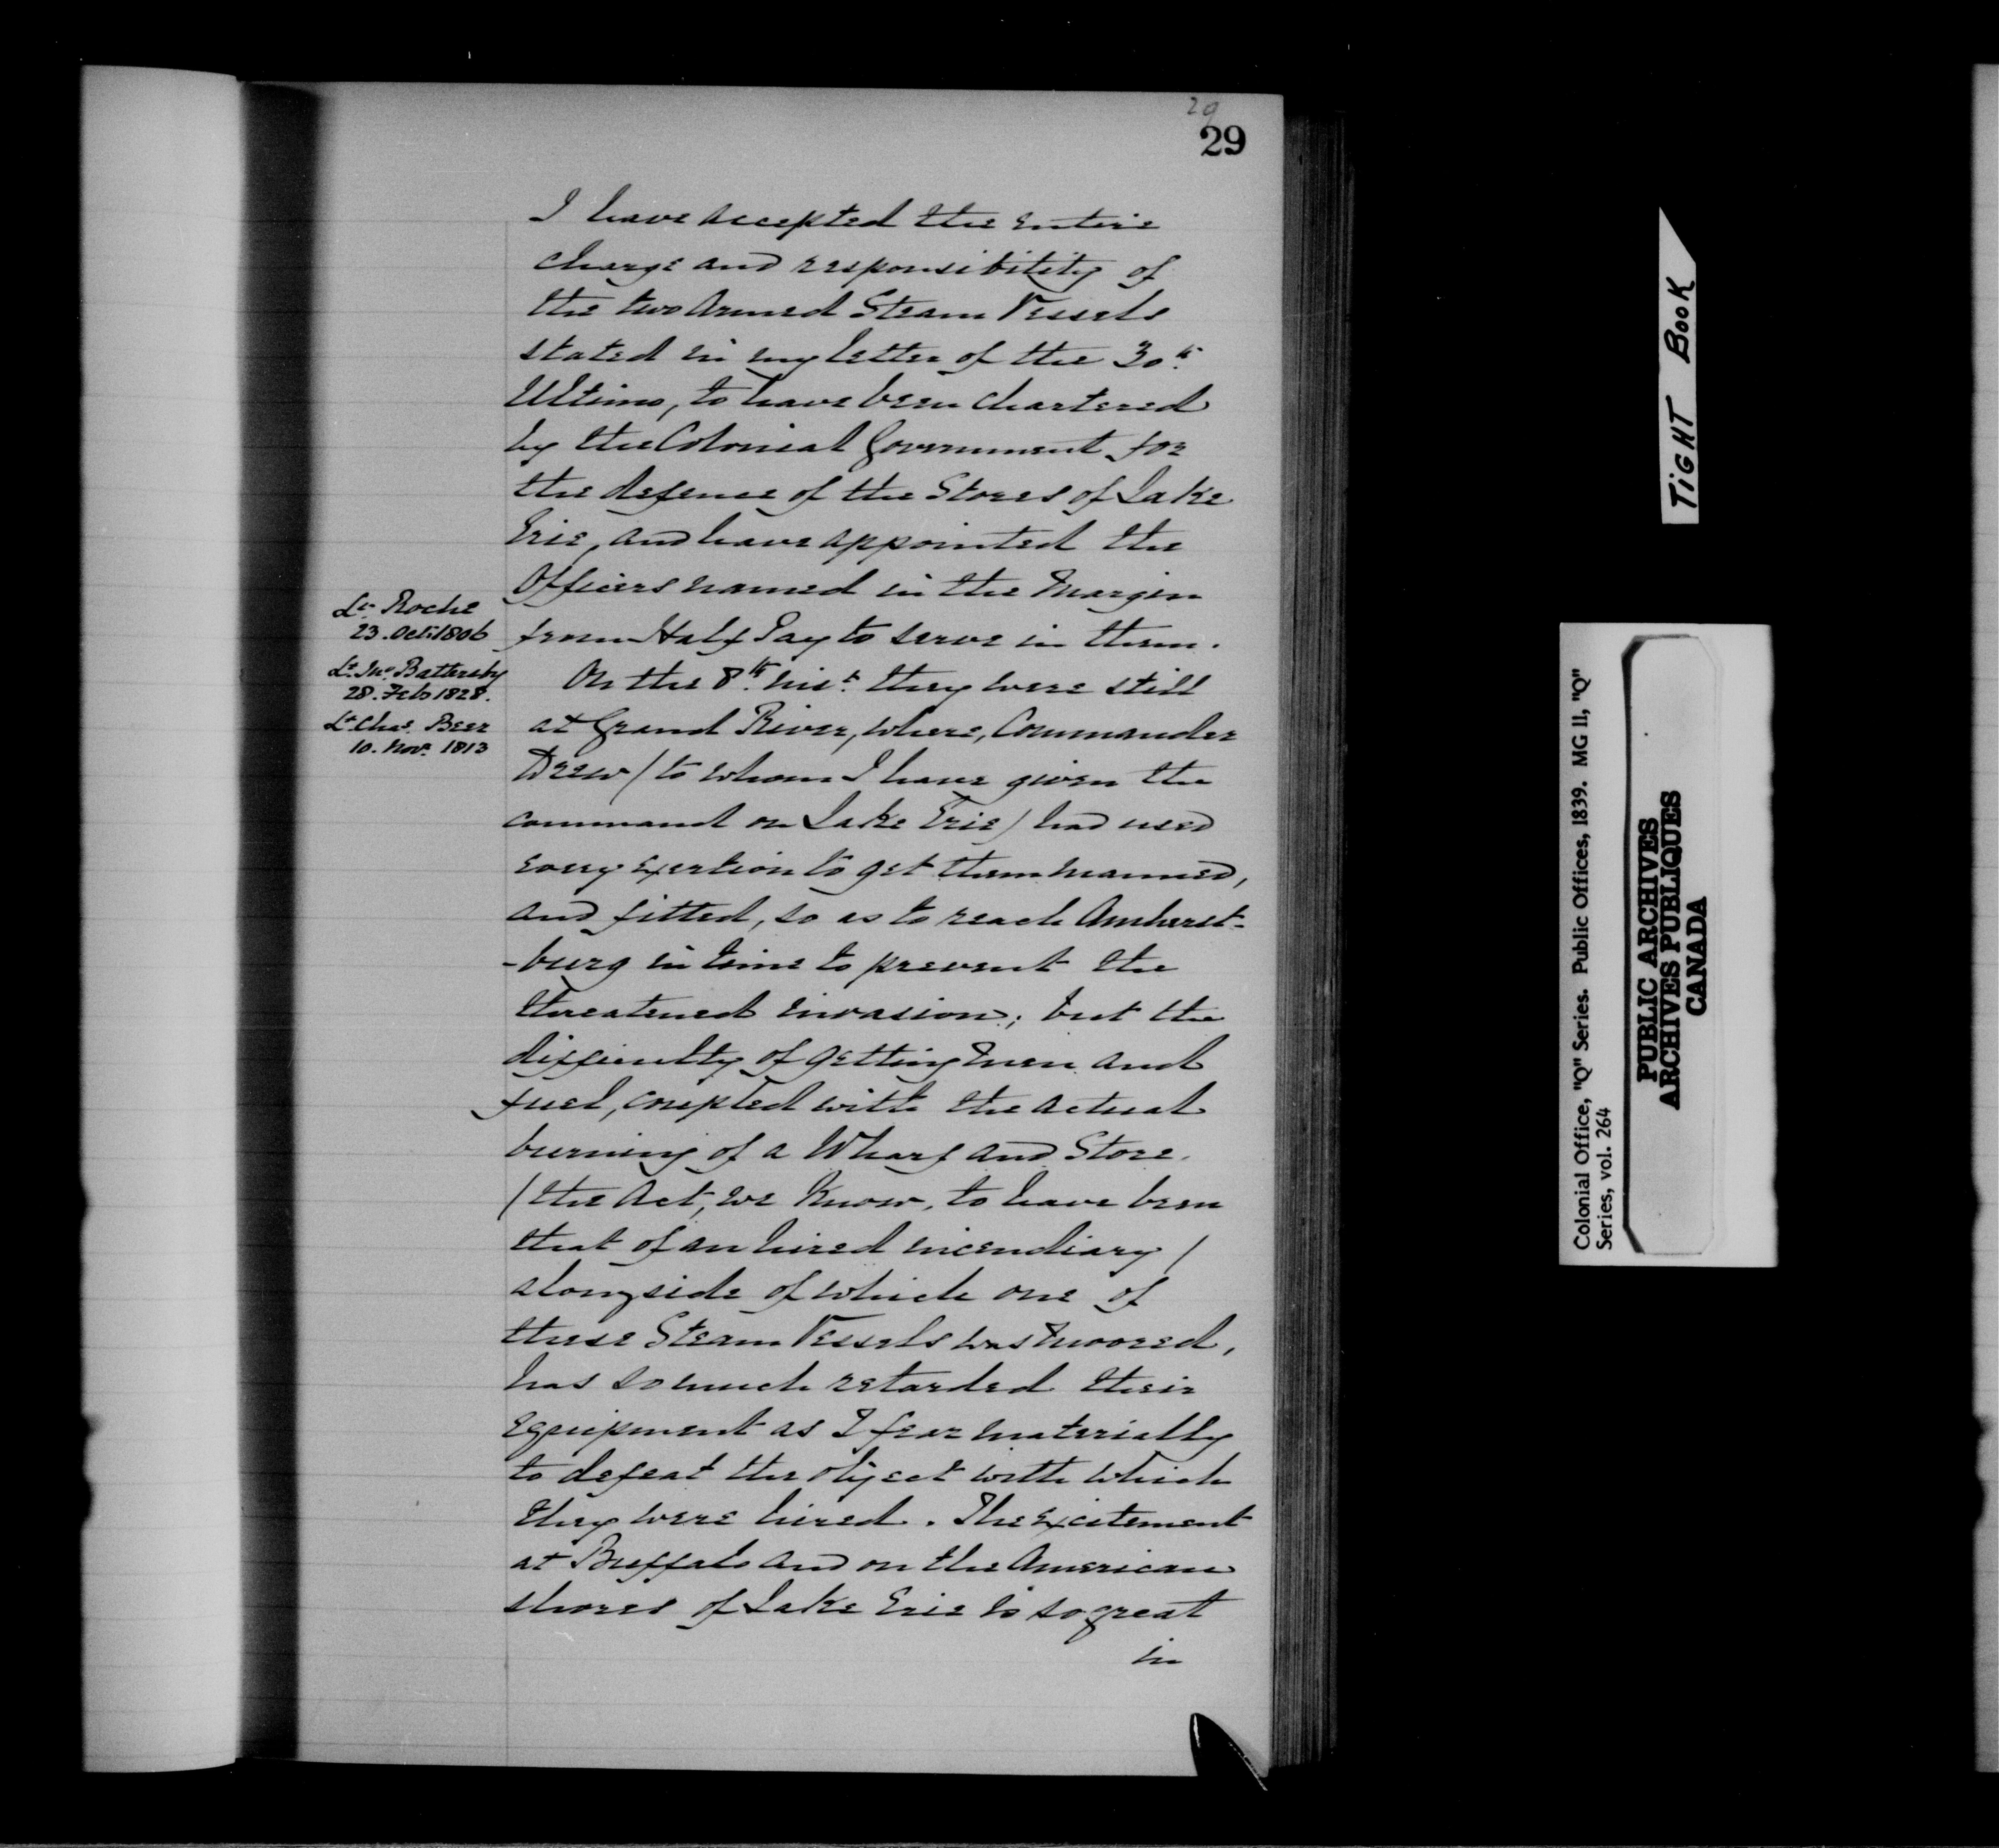 29
29
I have accepted the entire
charge and responsibility of
the two Armed Steam Vessels
stated in my letter of the 30th
Ultimo, to have been chartered
by the Colonial Government for
the defence of the Stores of Lake
Erie, and have appointed the
Officers named in the Margin
from Half Pay to serve in them.
Lt Roche
23. Oct. 1806
Lt Jno Battersby
28. Feb 1828.
Lt Chas. Beer
10. Nov. 1813
On the 8th inst they were still
at Grand River, where, Commander
Drew (to whom I have given the
command on Lake Erie) had used
every exertion to get them manned,
and fitted, so as to reach Amherst-
-burg in time to prevent the
threatened invasion; but the
difficulty of getting men and
fuel, coupled with the actual
burning of a Wharf and Store.
(the act, we know, to have been
that of an hired incendiary)
alongside of which one of
these Steam Vessels was moored,
has so much retarded their
equipment as I fear materially
to defeat the object with which
they were hired. The excitement
at Buffalo and on the American
shores of Lake Erie is so great
in
TIGHT BOOK
Colonial Office, "Q" Series. Public Offices, 1839. MG 11, "Q"
Series, vol. 264
PUBLIC ARCHIVES
ARCHIVES PUBLIQUES
CANADA